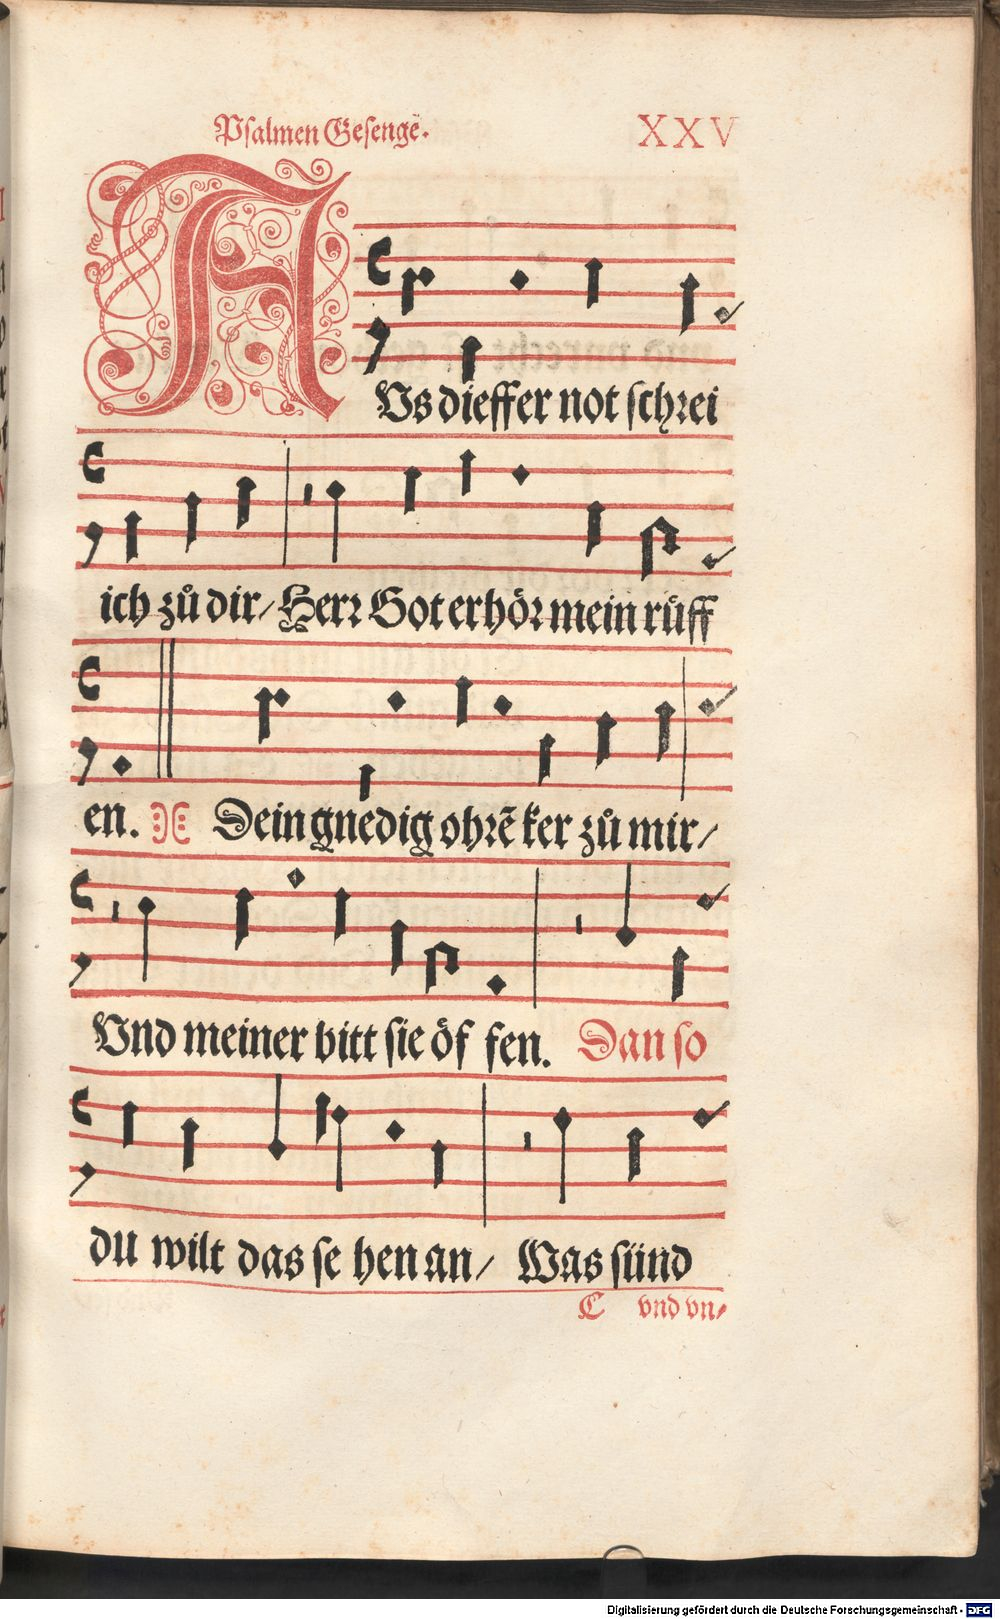 Psalmen Gesengē. XXV
AVs dieffer not schrei
ich zů dir/ Herr Got erhör mein růff
en. Dein gnedig ohrē ker zů mir/
Vnd meiner bitt sie öf fen. Dan so
du wilt das se hen an/ Was sünd
C vnd vn/
Digitalisierung gefördert durch die Deutsche Forschungsgemeinschaft - DFG